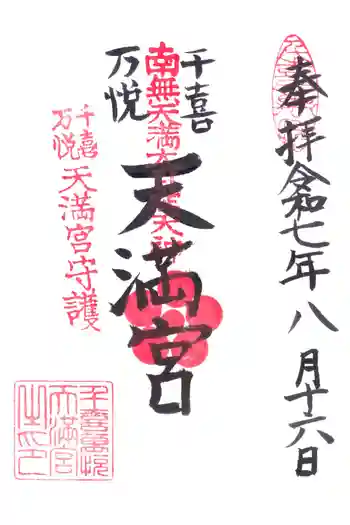 奉拝
令和七年八月十六日
千喜
万悦
天満宮
南無天満大自在天神
千喜
万悦
天満宮守護
千喜萬悦
天満宮
之印